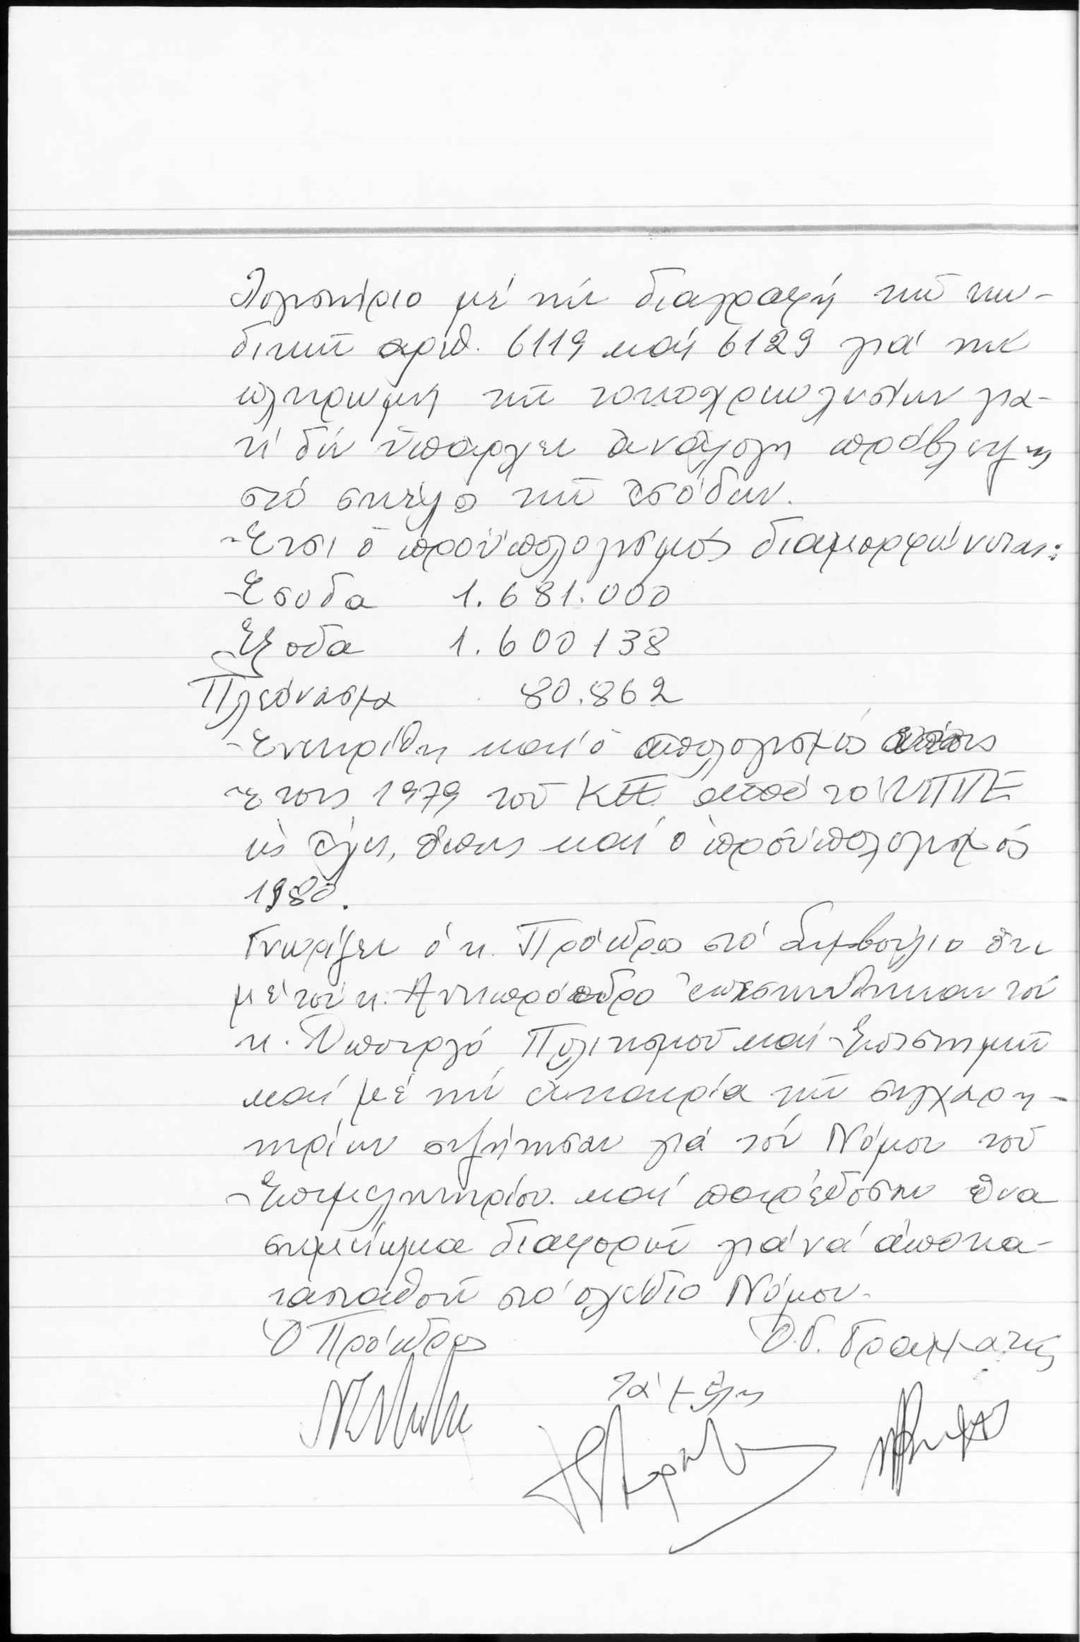 Λογιστήριο μέ τήν διαγραφή τῶν κω-
δικῶν αριθ. 6119 καί 6129 γιά τήν
πληρωμή τῶν τοκοχρεωλυσίων για-
τί δέν ὑπάρχει ἀνάλογη πρόβλεψις
στό σκέλος τῶν ἐσόδων.
Ἔτσι ὁ προϋπολογισμός διαμορφώνεται:
Ἔσοδα 1.681.000
Ἔξοδα 1.600138
Πλεόνασμα 80.862
Ἐνεκρίθη καί ὁ απολογισμός
ἔτους 1979 τοῦ ΚΕΕ από το ΥΠΠΕ
ὡς ἔχει, ὅπως καί ὁ προϋπολογισμός
1980.
Γνωρίζει ὁ κ. Πρόεδρος στό Συμβούλιο ὅτι
μέ τόν κ. Αντιπρόεδρο ἐπεσκέφθηκαν τόν
κ. Ὑπουργό Πολιτισμοῦ καί Ἐπιστημῶν
καί μέ τήν εὐκαιρία τῶν συγχαρη-
τηρίων συζήτησαν γιά τόν Νόμον τοῦ
Ἐπιμελητηρίου καί παρέδοσαν ἕνα
σημείωμα διαφορῶν γιά νά ἀποκα-
τασταθοῦν στό σχέδιο Νόμου.
Ὁ Πρόεδρος Ὁ Γ. Γραμματεύς
Τά Μέλη